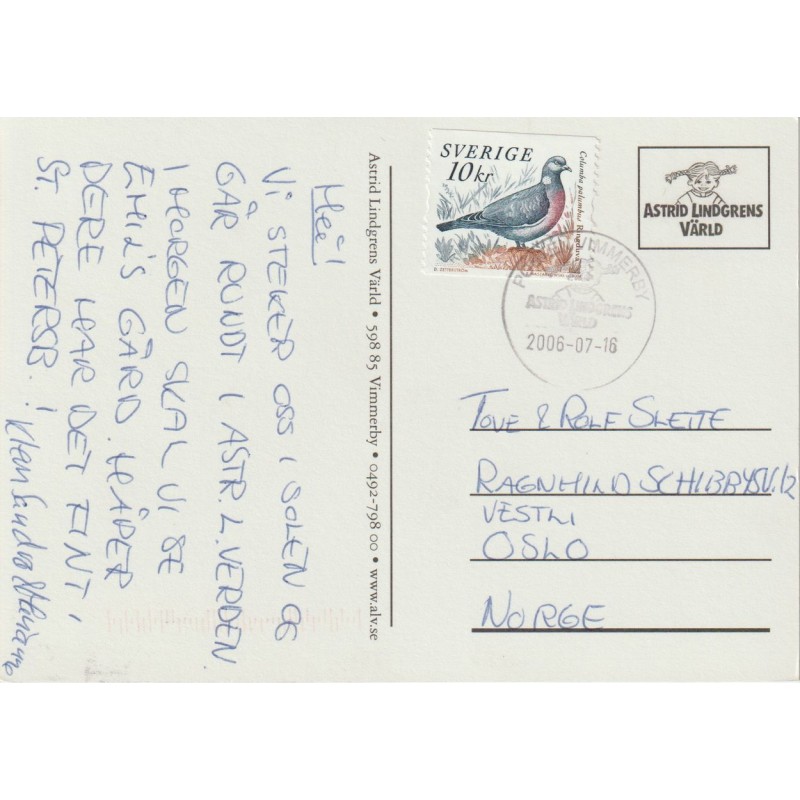 Hei!
VI STEKER OSS I SOLEN OG
GÅR RUNDT I ASTR. L. VERDEN
I MORGEN SKAL VI SE
EMIL'S GÅRD. HÅPER
DERE HAR DET FINT I
ST. PETERSB.!
Klem Sandra &
Astrid Lindgrens Värld • 598 85 Vimmerby • 0492-798 00 • www.alv.se
SVERIGE
10 kr
Columba palumbus Ringduva
ASTRID LINDGRENS
VÄRLD
VIMMERBY
ASTRID LINDGRENS
VÄRLD
2006-07-16
TOVE & ROLF SLETTE
RAGNHILD SCHIBBYSV. 12
VESTLI
OSLO
NORGE